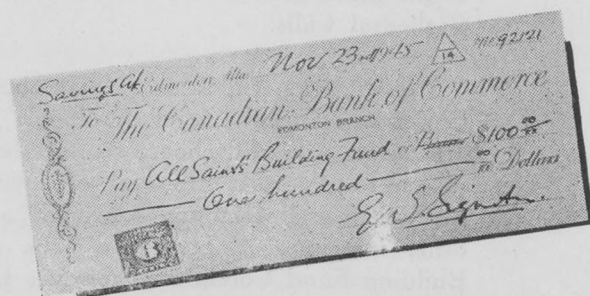 Savings A/c Edmonton, Alta. Nov 23rd 1915 14 No 92121
To The Canadian Bank of Commerce
EDMONTON BRANCH
Pay All Saints Building Fund or Bearer $100 00/xx
One hundred 00/xx Dollars
E. S.